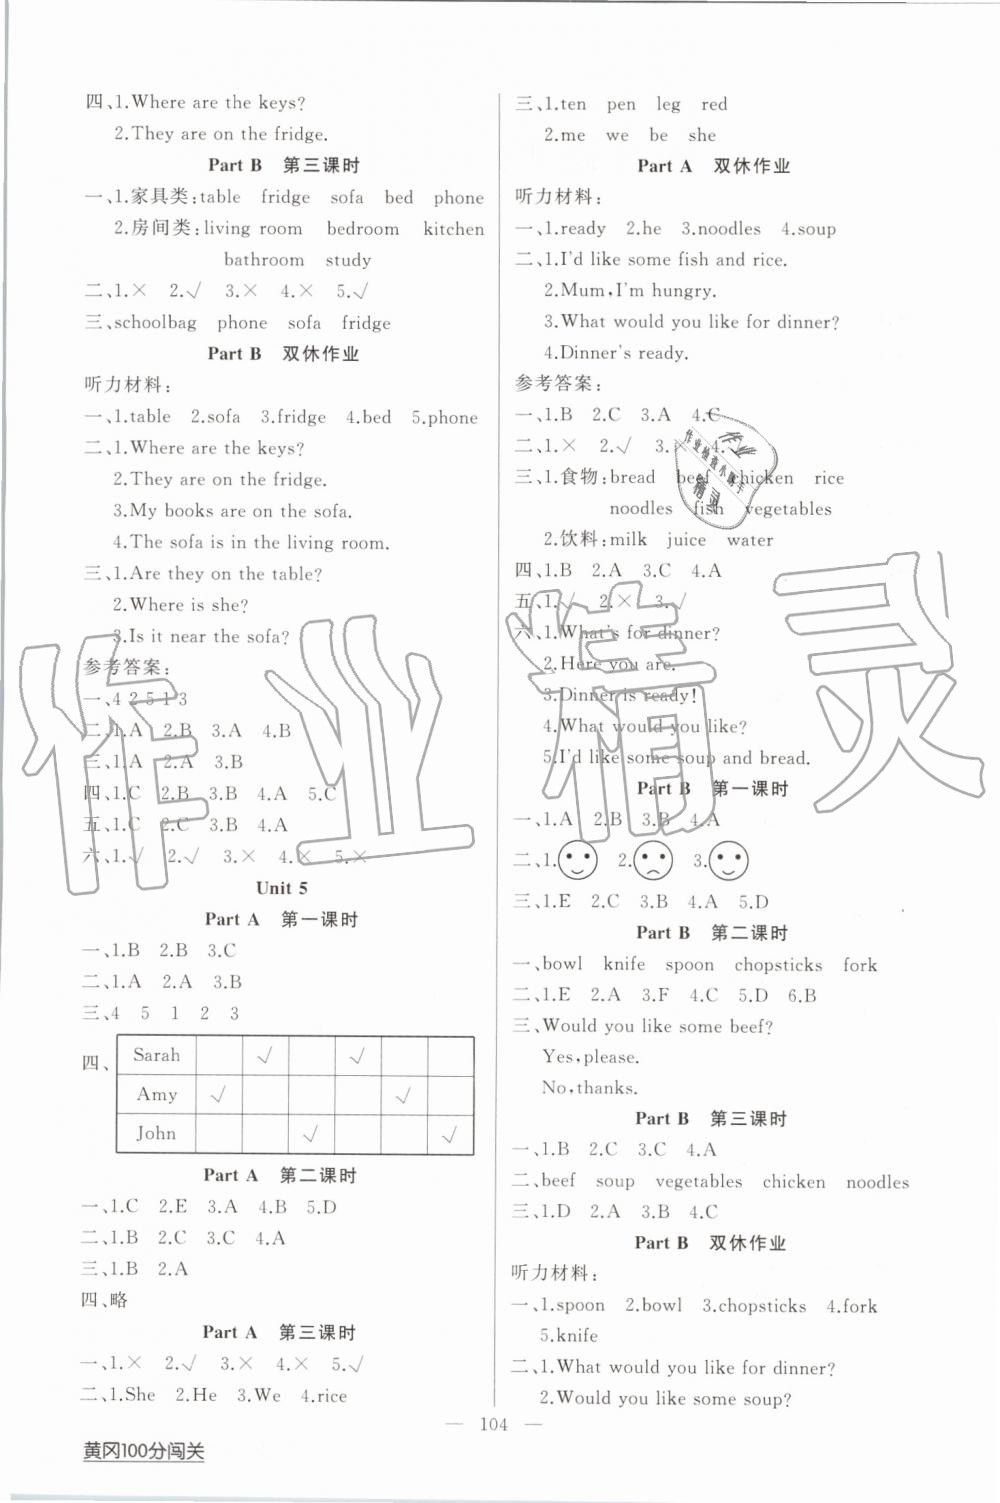 四、1.Where are the keys?
2.They are on the fridge.
Part B 第三课时
一、1.家具类:table fridge sofa bed phone
2.房间类:living room bedroom kitchen
bathroom study
二、1.× 2.√ 3.× 4.× 5.√
三、schoolbag phone sofa fridge
Part B 双休作业
听力材料:
一、1.table 2.sofa 3.fridge 4.bed 5.phone
二、1.Where are the keys?
2.They are on the fridge.
3.My books are on the sofa.
4.The sofa is in the living room.
三、1.Are they on the table?
2.Where is she?
3.Is it near the sofa?
参考答案:
一、4 2 5 1 3
二、1.A 2.B 3.A 4.B
三、1.A 2.A 3.B
四、1.C 2.B 3.B 4.A 5.C
五、1.C 2.C 3.B 4.A
六、1.√ 2.√ 3.× 4.× 5.×
Unit 5
Part A 第一课时
一、1.B 2.B 3.C
二、1.A 2.A 3.B
三、4 5 1 2 3
四、
Sarah √ √
Amy √ √
John √ √
Part A 第二课时
一、1.C 2.E 3.A 4.B 5.D
二、1.B 2.C 3.C 4.A
三、1.B 2.A
四、略
Part A 第三课时
一、1.× 2.√ 3.× 4.× 5.√
二、1.She 2.He 3.We 4.rice
三、1.ten pen leg red
2.me we be she
Part A 双休作业
听力材料:
一、1.ready 2.he 3.noodles 4.soup
二、1.I'd like some fish and rice.
2.Mum,I'm hungry.
3.What would you like for dinner?
4.Dinner's ready.
参考答案:
一、1.B 2.C 3.A 4.C
二、1.× 2.√ 3.× 4.
三、1.食物:bread beef chicken rice
noodles fish vegetables
2.饮料:milk juice water
四、1.B 2.A 3.C 4.A
五、1.√ 2.× 3.√
六、1.What's for dinner?
2.Here you are.
3.Dinner is ready!
4.What would you like?
5.I'd like some soup and bread.
Part B 第一课时
一、1.A 2.B 3.B 4.A
二、1. 2. 3.
三、1.E 2.C 3.B 4.A 5.D
Part B 第二课时
一、bowl knife spoon chopsticks fork
二、1.E 2.A 3.F 4.C 5.D 6.B
三、Would you like some beef?
Yes,please.
No,thanks.
Part B 第三课时
一、1.B 2.C 3.C 4.A
二、beef soup vegetables chicken noodles
三、1.D 2.A 3.B 4.C
Part B 双休作业
听力材料:
一、1.spoon 2.bowl 3.chopsticks 4.fork
5.knife
二、1.What would you like for dinner?
2.Would you like some soup?
— 104 —
黄冈100分闯关
作业精灵
作业
作业检查小助手
精灵